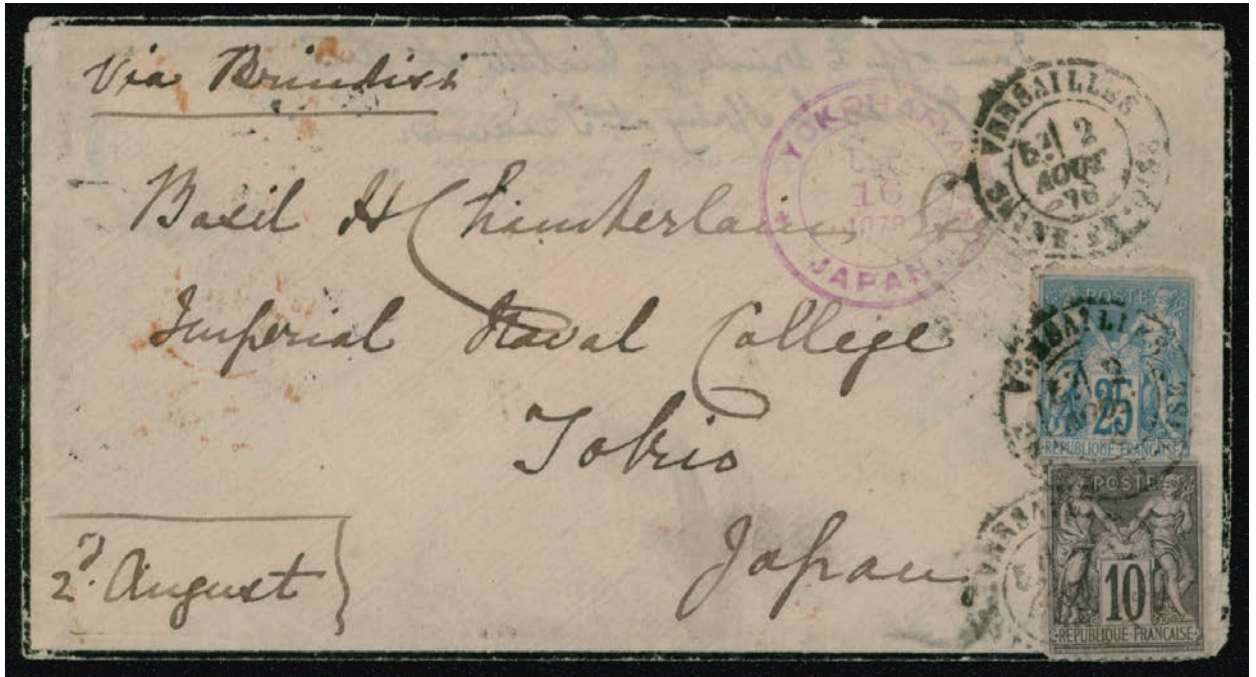 Via Brindisi
Basil H Chamberlain, Esq
Imperial Naval College
Tokio
Japan
2d. August
YOKOHAMA
16
JAPAN
VERSAILLES
2
AOUT
76
SEINE-ET-OISE
POSTE
25
REPUBLIQUE FRANCAISE
VERSAILLES
POSTE
10
REPUBLIQUE FRANCAISE